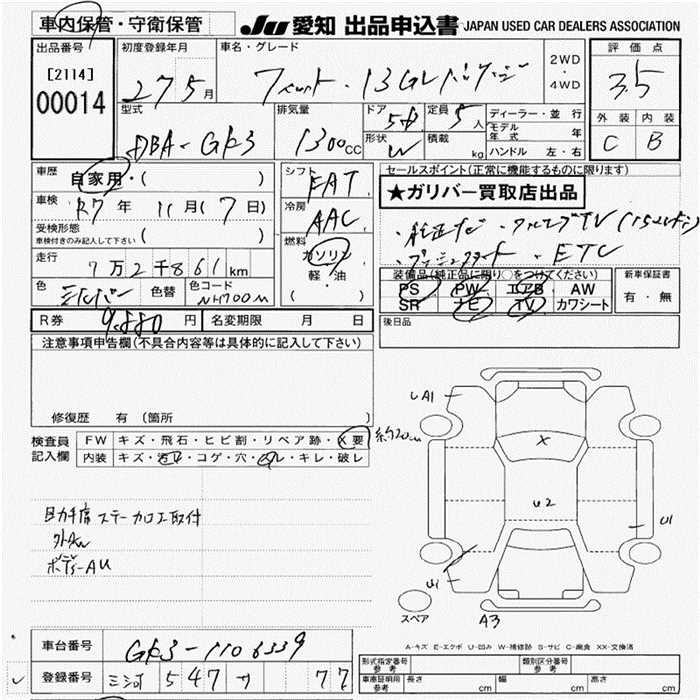 車内保管・守衛保管
JU 愛知 出品申込書 JAPAN USED CAR DEALERS ASSOCIATION
出品番号 [2114] 00014
初度登録年月 27 5 月
車名・グレード フィット・13G Lパッケージ
2WD ・ 4WD
評価点 3.5
外装 C 内装 B
型式 DBA-GK3
排気量 1300 CC
ドア 5D
形状 W
定員 5 人
積載 kg
ディーラー・並行
モデル年式 年
ハンドル 左・右
車歴 自家用・( )
車検 R7 年 11 月 (7 日)
受検形態 車検付きのみ記入して下さい ( )
走行 7万2千861 km
色 シルバー 色替 色コード NH700M
シフト FAT
冷房 AAC
燃料 ガソリン 軽・油 ( ・ )
セールスポイント(正常に機能するものに限ります)
★ガリバー買取店出品
・純正ナビ ・フルセグTV
・プッシュスタート ・ETC
装備品(純正品に限り○をつけてください)
PS PW エアB AW
SR ナビ TV カワシート
新車保証書 有・無
R券 9,880 円 名変期限 月 日
後日品
注意事項申告欄(不具合内容等は具体的に記入して下さい)
修復歴 有 (箇所 )
検査員記入欄
FW キズ・飛石・ヒビ割・リペア跡・X要 約20cm
内装 キズ・汚レ・コゲ・穴・スレ・キレ・破レ
助手席 ステー加工取付
外AW
ボディーAU
UA1
X
U2
U1
U1
A3
スペア
A-キズ E-エクボ U-凹み W-補修跡 S-サビ C-腐食 XX-交換済
車台番号 GK3-1106339
登録番号 三河 547 77
形式指定番号 参考 類別区分番号 参考
車庫証明用 参考 長さ cm 幅 cm 高さ cm